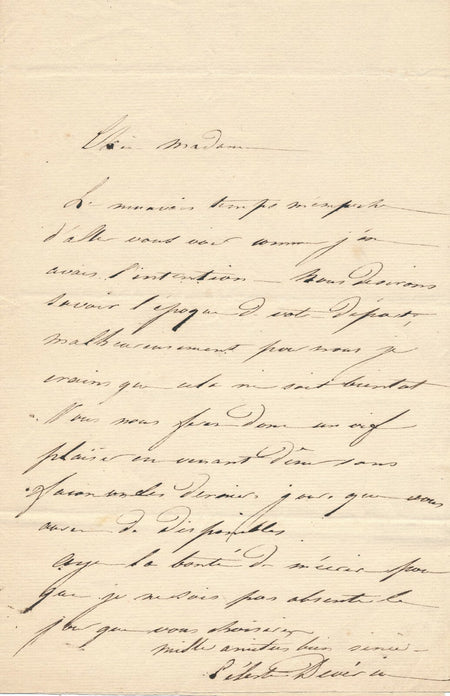 Chère madame
Le mauvais temps m'empêche
d'aller vous voir comme j'en
avais l'intention — Nous desirons
savoir l'époque de votre départ,
malheureusement pour nous je
crains que cela ne soit bientot
Vous nous ferez donc un vif
plaisir en venant dîner sans
façon un des derniers jours que vous
aurez de disponibles
ayez la bonté de m'écrire pour
que je ne sois pas absente le
jour que vous choisirez
mille amitiés bien sincères
Céleste Devéria